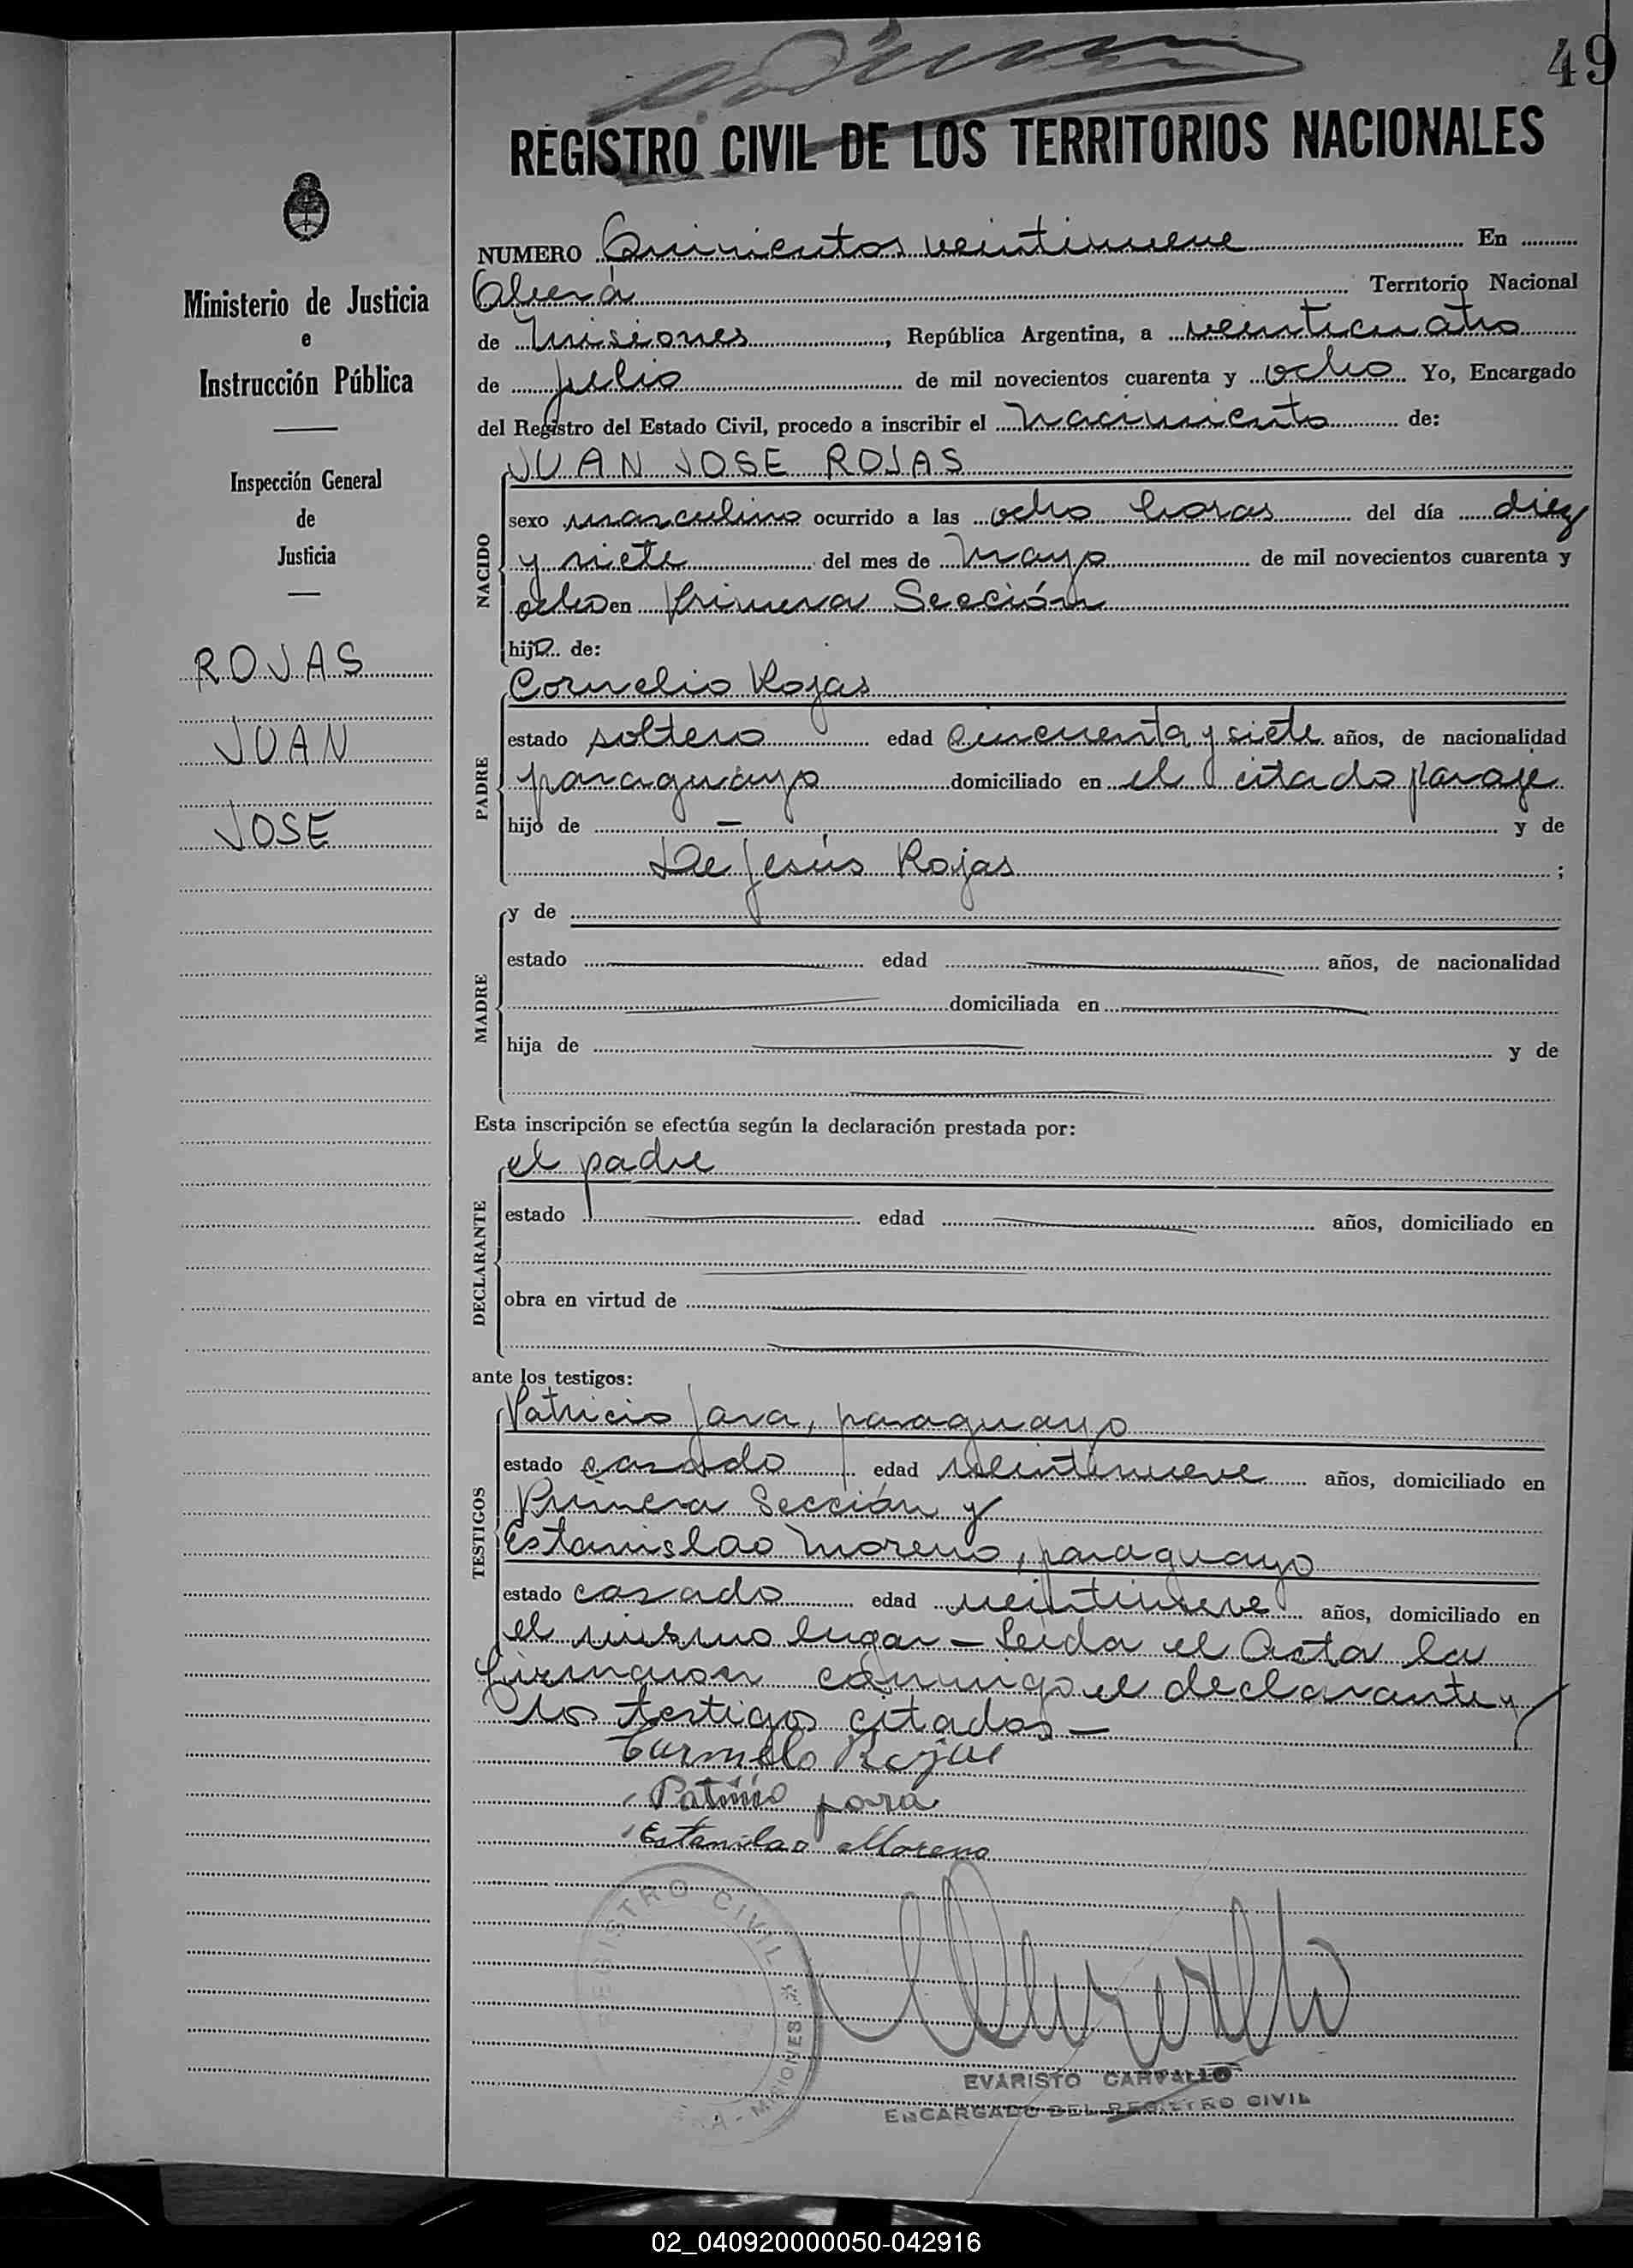 49
REGISTRO CIVIL DE LOS TERRITORIOS NACIONALES
Ministerio de Justicia
e
Instrucción Pública
Inspección General
de
Justicia
ROJAS
JUAN
JOSE
NUMERO Quinientos veintinueve En
Oberá Territorio Nacional
de Misiones, República Argentina, a veinticuatro
de julio de mil novecientos cuarenta y ocho Yo, Encargado
del Registro del Estado Civil, procedo a inscribir el nacimiento de:
NACIDO
JUAN JOSE ROJAS
sexo masculino ocurrido a las ocho horas del día diez
y siete del mes de Mayo de mil novecientos cuarenta y
ocho en Primera Sección
hijo de:
PADRE
Cornelio Rojas
estado soltero edad cincuenta y siete años, de nacionalidad
paraguayo domiciliado en el citado paraje
hijo de — y de
De Jesús Rojas ;
MADRE
y de
estado edad años, de nacionalidad
domiciliada en
hija de y de
Esta inscripción se efectúa según la declaración prestada por:
DECLARANTE
el padre
estado edad años, domiciliado en
obra en virtud de
ante los testigos:
TESTIGOS
Patricio Jara, paraguayo
estado casado edad veintinueve años, domiciliado en
Primera Sección y
Estanislao Moreno, paraguayo
estado casado edad veintinueve años, domiciliado en
el mismo lugar — Leida el Acta la
firmaron conmigo el declarante y
los testigos citados —
Rojas
Estanilao Moreno
REGISTRO CIVIL
MISIONES
EVARISTO CARVALLO
ENCARGADO DEL REGISTRO CIVIL
02_040920000050-042916